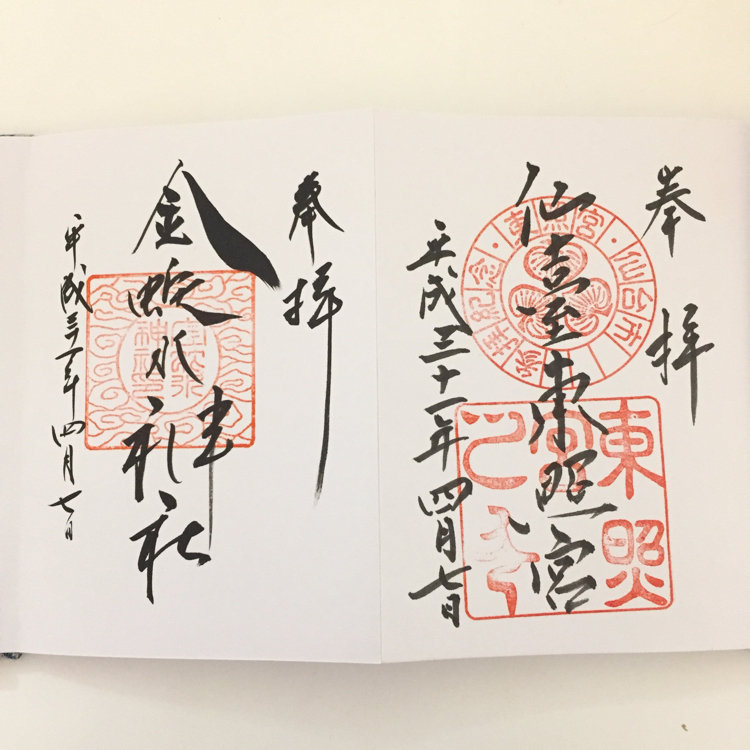 奉拝
仙臺東照宮
平成三十一年四月七日
東照宮・仙台市
東照宮
奉拝
金蛇水神社
平成三十一年四月七日